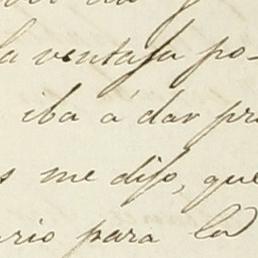 la ventaja po-
iba á dar pr
s me dijo, que
ario para la